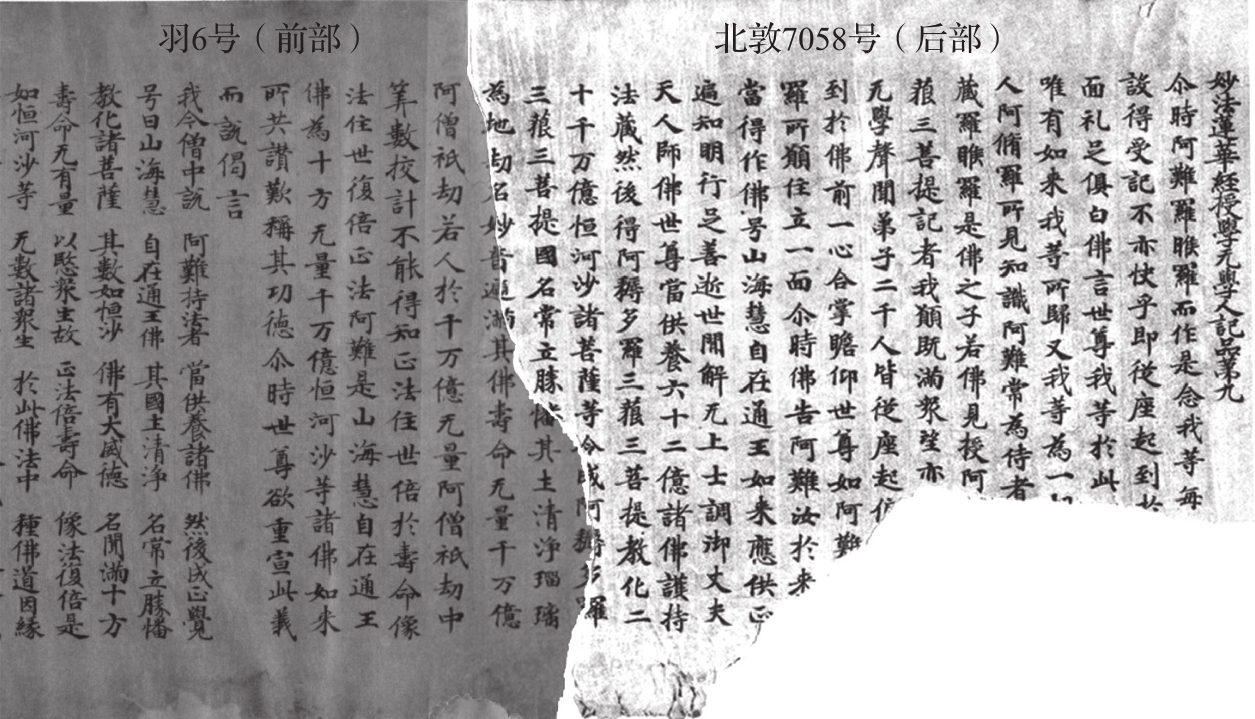 羽6号（前部）
北敦7058号（后部）
妙法蓮華經授學无學人記品第九
尒時阿難羅睺羅而作是念我等每
設得受記不亦快乎即從座起到於
面礼足俱白佛言世尊我等於此
唯有如来我等所歸又我等為一切
人阿脩羅所見知識阿難常為侍者
藏羅睺羅是佛之子若佛見授阿
藐三菩提記者我願既滿衆望亦
无學聲聞弟子二千人皆從座起偏
到於佛前一心合掌瞻仰世尊如阿難
羅所願住立一面尒時佛告阿難汝於来
當得作佛号山海慧自在通王如来應供正
遍知明行足善逝世間解无上士調御丈夫
天人師佛世尊當供養六十二億諸佛護持
法藏然後得阿耨多羅三藐三菩提教化二
十千万億恒河沙諸菩薩等令成阿耨多羅
三藐三菩提國名常立勝幡其土清淨瑠璃
為地劫名妙音遍滿其佛壽命无量千万億
阿僧祇劫若人於千万億无量阿僧祇劫中
筭數挍計不能得知正法住世倍於壽命像
法住世復倍正法阿難是山海慧自在通王
佛為十方无量千万億恒河沙等諸佛如来
所共讃歎稱其功德尒時世尊欲重宣此義
而說偈言
我今僧中說 阿難持法者 當供養諸佛 然後成正覺
号曰山海慧 自在通王佛 其國土清淨 名常立勝幡
教化諸菩薩 其數如恒沙 佛有大威德 名聞滿十方
壽命无有量 以愍衆生故 正法倍壽命 像法復倍是
如恒河沙等 无數諸衆生 於此佛法中 種佛道因緣